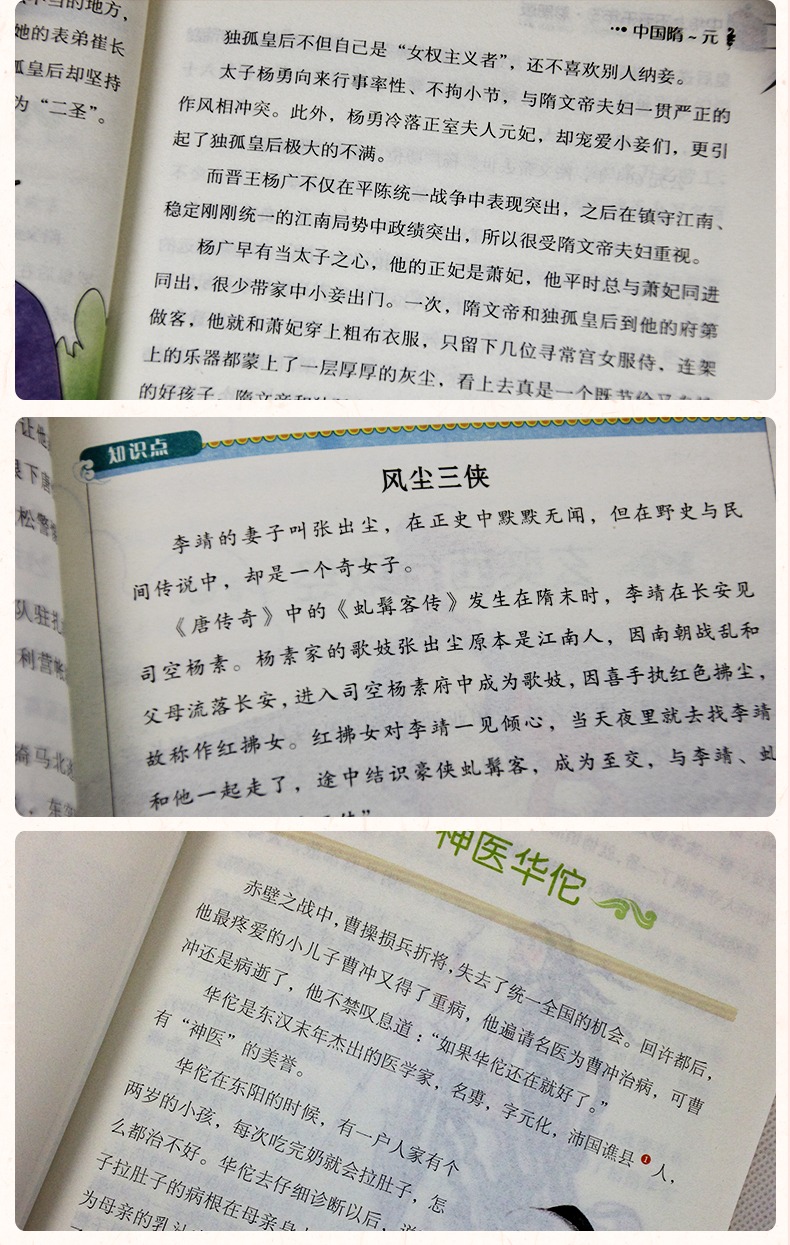 不当的地方,
她的表弟崔长
孤皇后却坚持
为“二圣”。
••• 中国隋~元
独孤皇后不但自己是“女权主义者”,还不喜欢别人纳妾。
太子杨勇向来行事率性、不拘小节,与隋文帝夫妇一贯严正的
作风相冲突。此外,杨勇冷落正室夫人元妃,却宠爱小妾们,更引
起了独孤皇后极大的不满。
而晋王杨广不仅在平陈统一战争中表现突出,之后在镇守江南、
稳定刚刚统一的江南局势中政绩突出,所以很受隋文帝夫妇重视。
杨广早有当太子之心,他的正妃是萧妃,他平时总与萧妃同进
同出,很少带家中小妾出门。一次,隋文帝和独孤皇后到他的府第
做客,他就和萧妃穿上粗布衣服,只留下几位寻常宫女服侍,连架
上的乐器都蒙上了一层厚厚的灰尘,看上去真是一个既节俭又
的好孩子。隋文帝和独
让他
下唐
松警
队驻扎
利营帐
骑马北
知识点
风尘三侠
李靖的妻子叫张出尘,在正史中默默无闻,但在野史与民
间传说中,却是一个奇女子。
《唐传奇》中的《虬髯客传》发生在隋末时,李靖在长安见
司空杨素。杨素家的歌妓张出尘原本是江南人,因南朝战乱和
父母流落长安,进入司空杨素府中成为歌妓,因喜手执红色拂尘,
故称作红拂女。红拂女对李靖一见倾心,当天夜里就去找李靖
和他一起走了,途中结识豪侠虬髯客,成为至交,与李靖、虬
神医华佗
赤壁之战中,曹操损兵折将,失去了统一全国的机会。回许都后,
他最疼爱的小儿子曹冲又得了重病,他遍请名医为曹冲治病,可曹
冲还是病逝了,他不禁叹息道:“如果华佗还在就好了。”
华佗是东汉末年杰出的医学家,名旉,字元化,沛国谯县❶人,
有“神医”的美誉。
华佗在东阳的时候,有一户人家有个
两岁的小孩,每次吃完奶就会拉肚子,怎
么都治不好。华佗去仔细诊断以后,说
子拉肚子的病根在母亲身
为母亲的乳汁